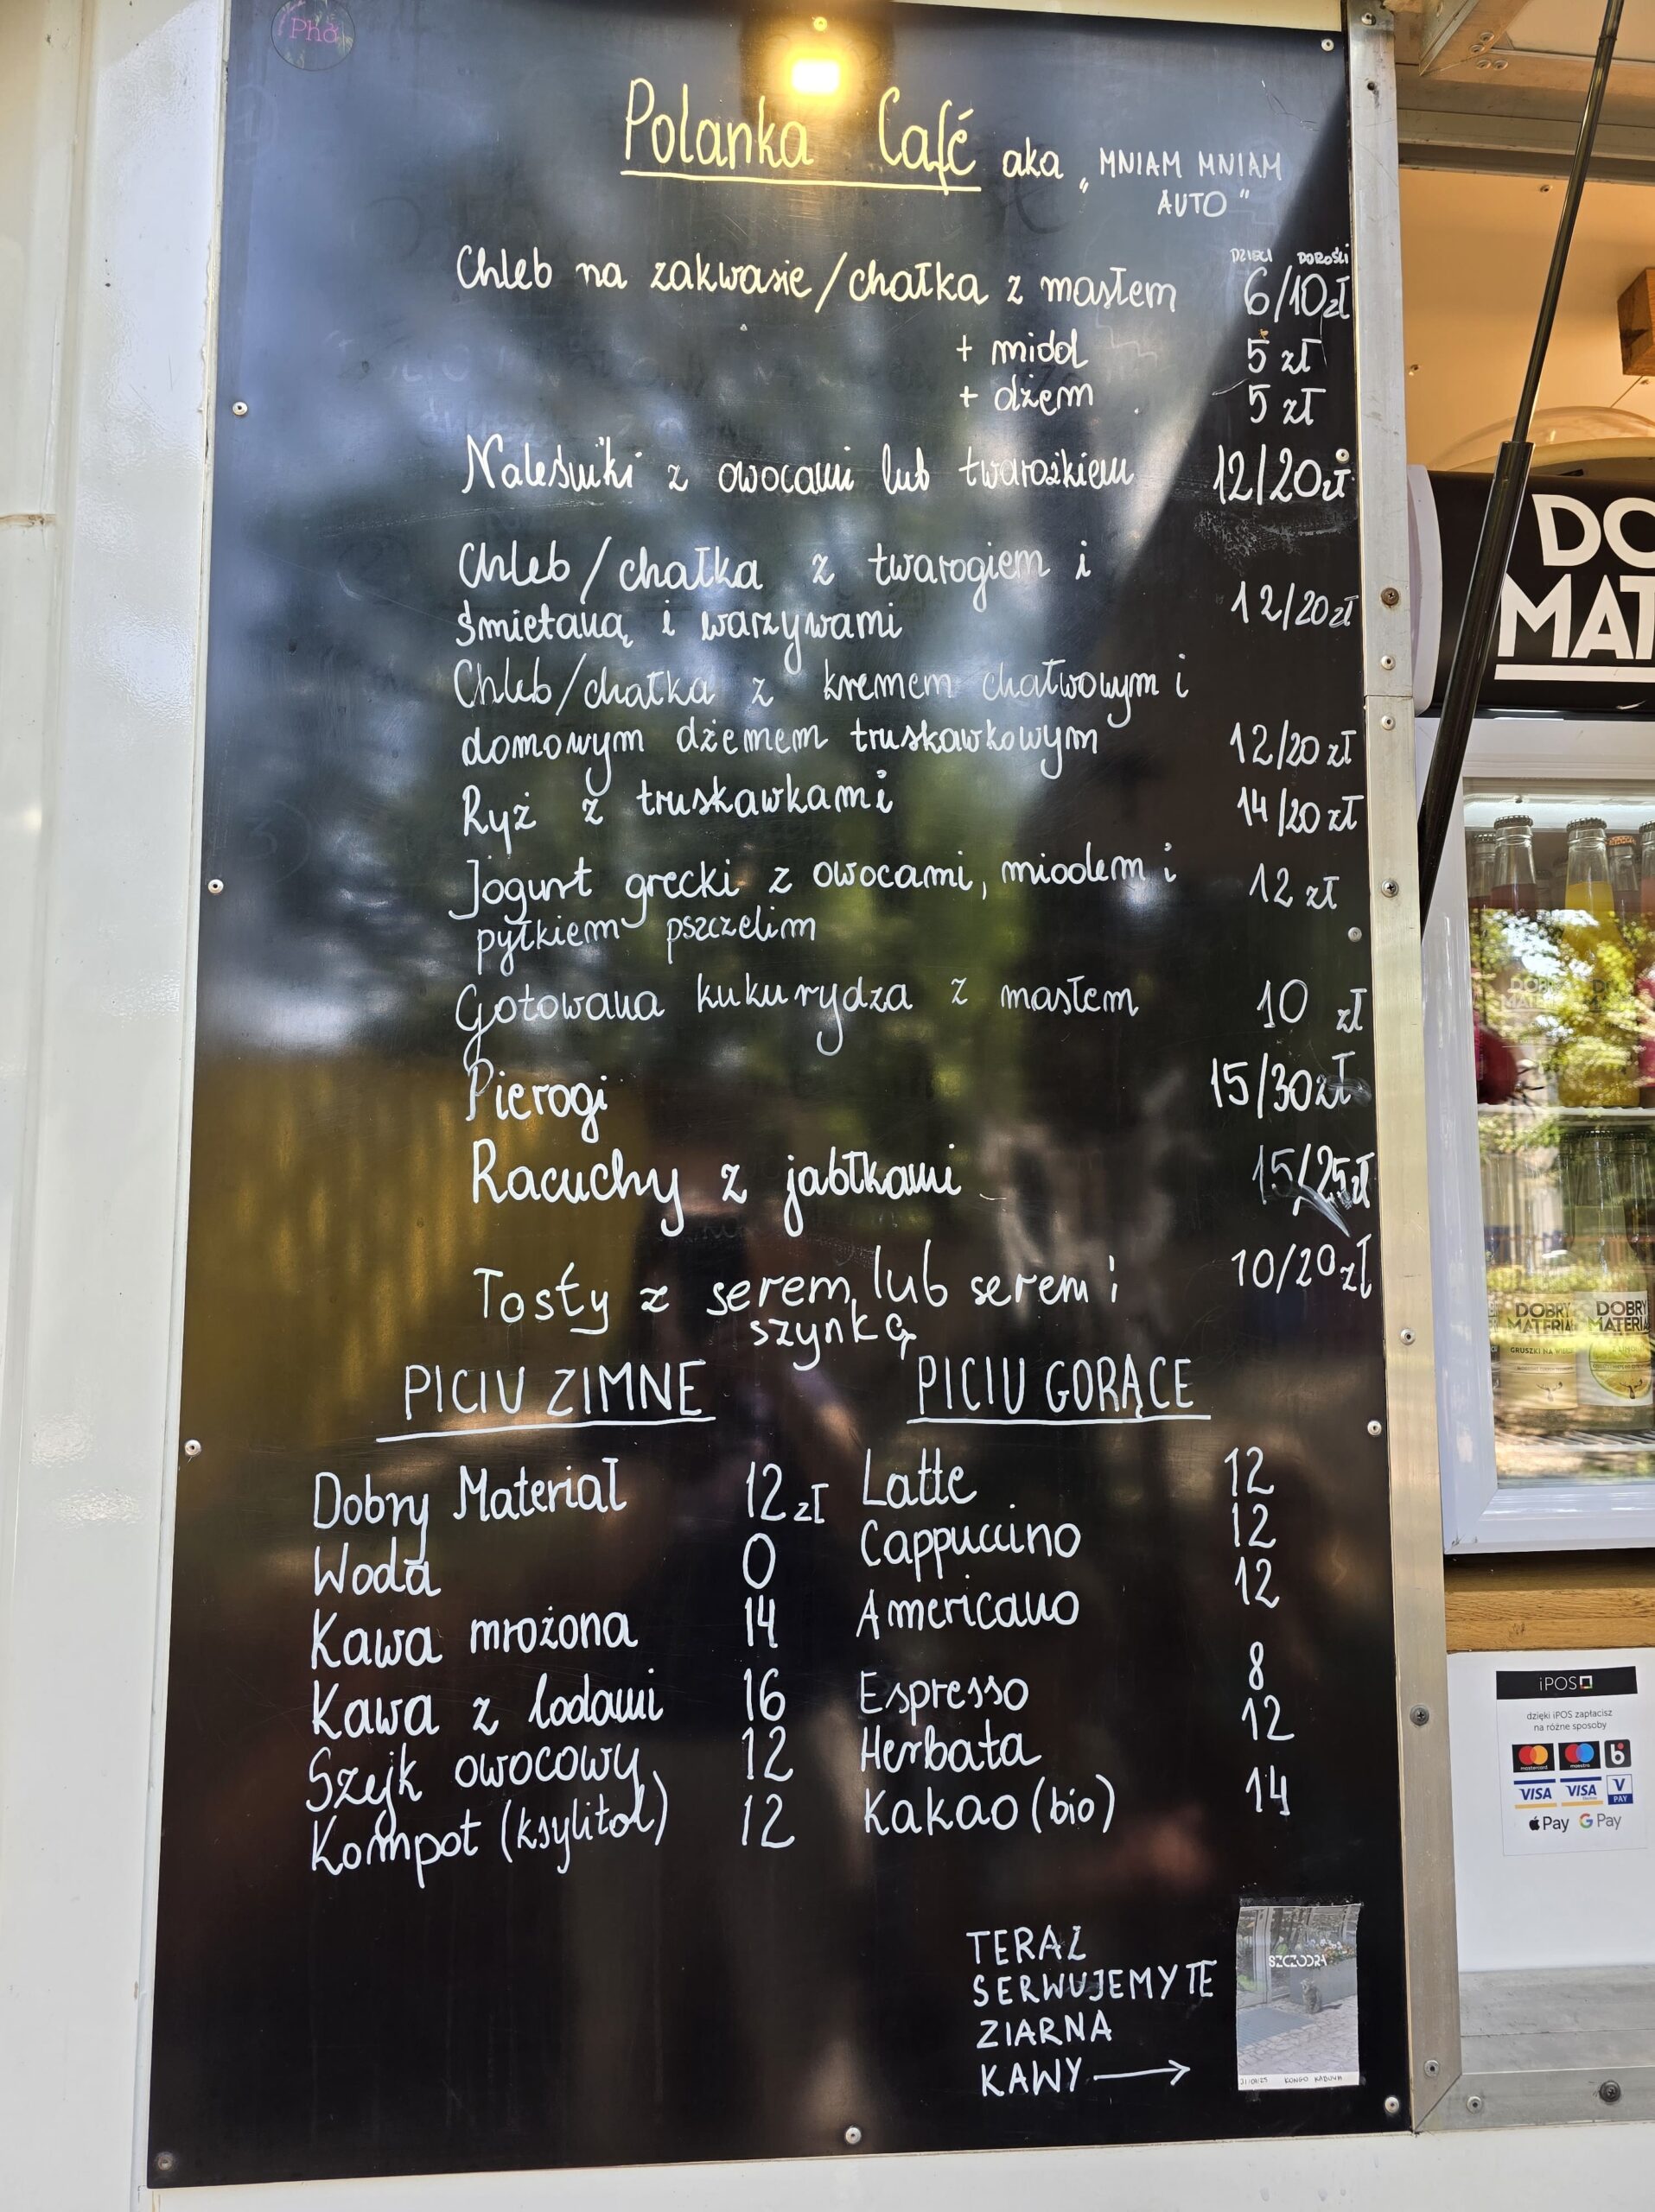 Pho
Polanka Café aka „MNIAM MNIAM
AUTO"
DZIECI DOROŚLI
Chleb na zakwasie/chałka z masłem 6/10zł
+ miód 5 zł
+ dżem 5 zł
Naleśniki z owocami lub twarożkiem 12/20zł
Chleb/chałka z twarogiem i
śmietaną i warzywami 12/20zł
Chleb/chałka z kremem chałwowym i
domowym dżemem truskawkowym 12/20 zł
Ryż z truskawkami 14/20 zł
Jogurt grecki z owocami, miodem i 12 zł
pyłkiem pszczelim
Gotowana kukurydza z masłem 10 zł
Pierogi 15/30zł
Racuchy z jabłkami 15/25zł
Tosty z serem lub serem i 10/20zł
szynką
PICIU ZIMNE
Dobry Materiał 12zł
Woda 0
Kawa mrożona 14
Kawa z lodami 16
Szejk owocowy 12
Kompot (ksylitol) 12
PICIU GORĄCE
Latte 12
Cappuccino 12
Americano 12
Espresso 8
Herbata 12
Kakao (bio) 14
TERAZ
SERWUJEMY TE
ZIARNA
KAWY
SZCZODRA
DO
MAT
DOBRY
MATERIA
GRUSZKI NA
DOBRY
MATERIA
iPOS
dzięki iPOS zapłacisz
na różne sposoby
mastercard maestro
VISA VISA V PAY
Pay G Pay